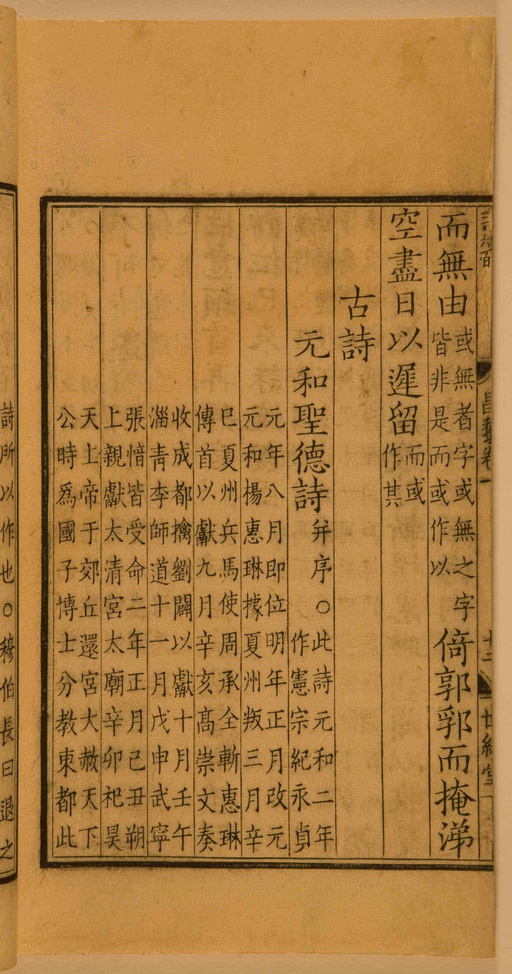 昌黎卷一 十二 世綵堂
而無由或無者字或無之字
皆非是而或作以倚郭郛而掩涕
空盡日以遲留而或
作其
古詩
元和聖德詩并序○此詩元和二年
作憲宗紀永貞
元年八月即位明年正月改元
元和楊惠琳據夏州叛三月辛
巳夏州兵馬使周承全斬惠琳
傳首以獻九月辛亥高崇文奏
收成都擒劉闢以獻十月壬午
淄青李師道十一月戊申武寧
張愔皆受命二年正月己丑朔
上親獻太清宮太廟辛卯祀昊
天上帝于郊丘還宮大赦天下
公時爲國子博士分教東都此
詩所以作也○穆伯長曰退之